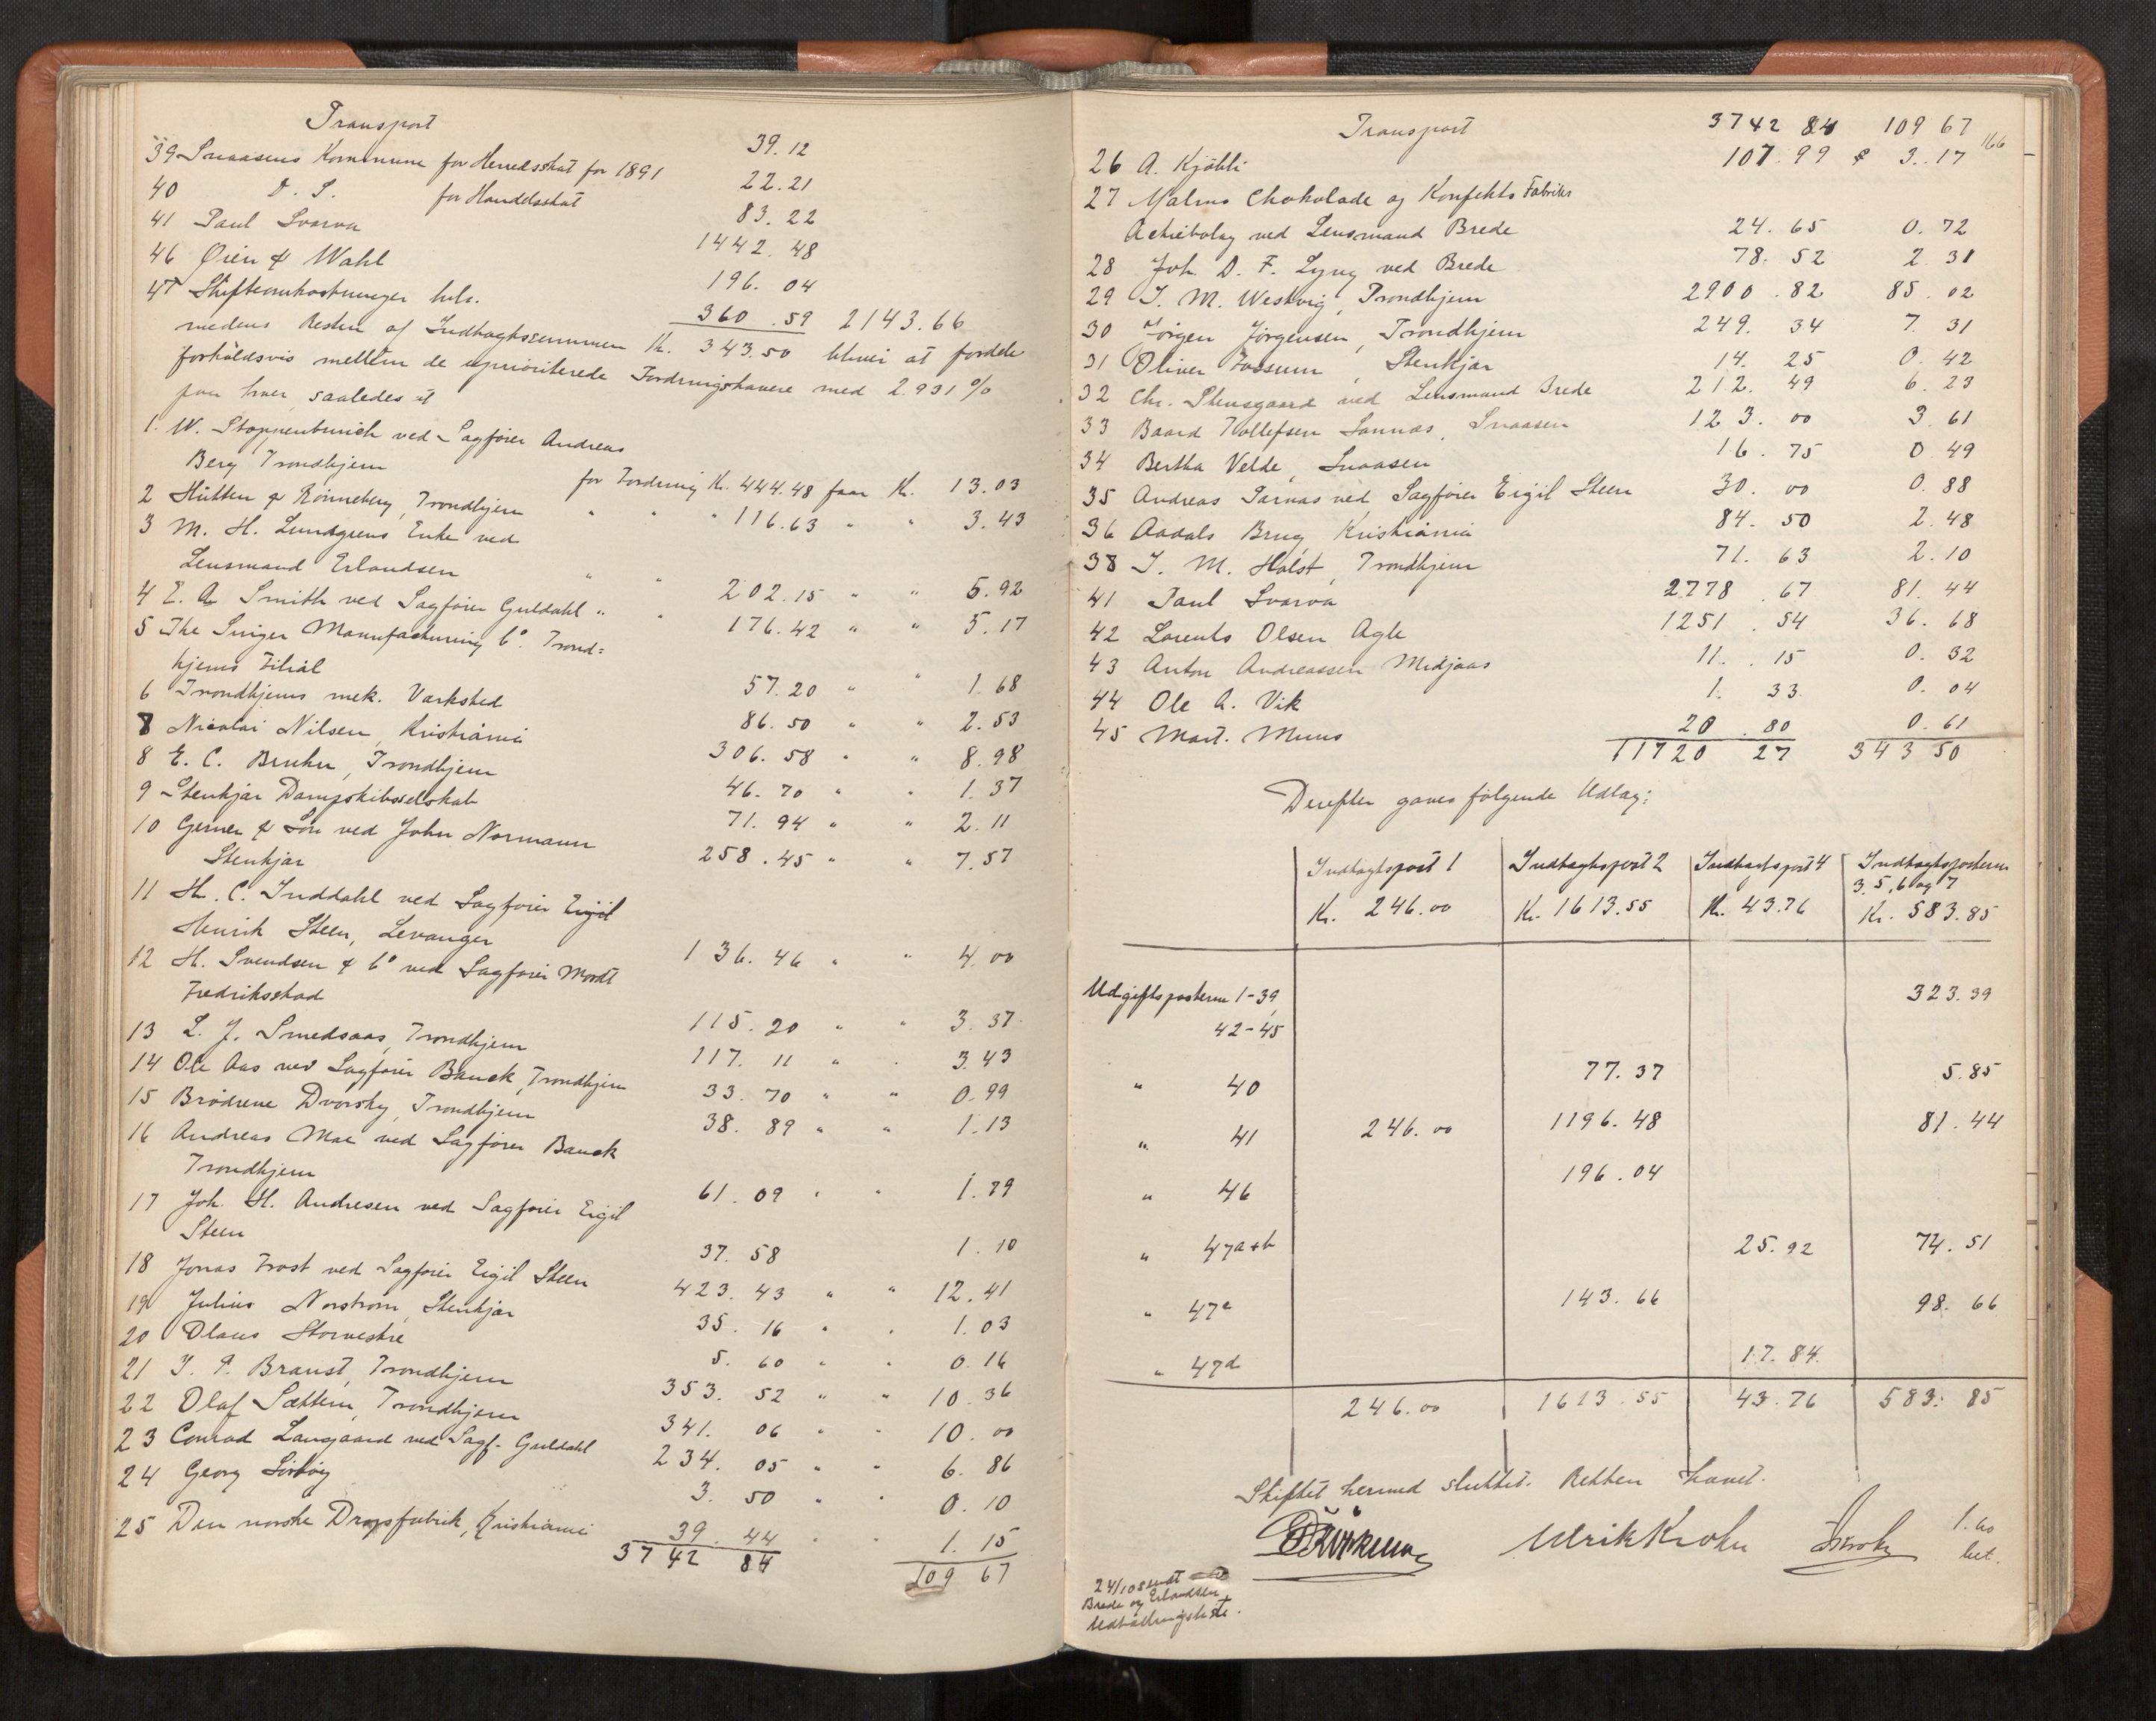 Transport 39.12
39 Snaasens Kommune for Herredsskat for 1891 22.21
40 D. S. for Handelsskat 83.22
41 Paul Svarva 1442.48
46 Øien & Wahl 196.04
47 Skifteomkostninger 360.59 2143.66
medens Resten af Indtægtssummen Kr. 343.50 bliver at fordele
forholdsvis mellem de uprioriterede Fordringshavere med 2.931 %
paa hver, saaledes at
1. W. Stoppenbrinck ved Sagfører Andreas
Berg Trondhjem for Fordring Kr. 444.48 faar Kr. 13.03
2 Hütten & Rönneberg, Trondhjem " " " 116.63 " " 3.43
3 M. H. Lundgrens Enke ved
Lensmand Erlandsen " " 202.15 " " 5.92
4 E. A. Smith ved Sagfører Guldahl " " 176.42 " " 5.17
5 The Singer Manufacturing Co. Trond=
hjems Filial 57.20 " " 1.68
6 Trondhjems mek. Værksted 86.50 " " 2.53
7 Nicolai Nilsen, Kristiania 306.58 " " 8.98
8 E. C. Bruhn, Trondhjem 46.70 " " 1.37
9 Stenkjær Dampskibsselskab 71.94 " " 2.11
10 Gerner & Søn ved John Normann
Stenkjær 258.45 " " 7.57
11 H. C. Inddahl ved Sagfører Eigil
Henrik Steen, Levanger 136.46 " " 4.00
12 H. Svendsen & Co ved Sagfører Mordt
Fredriksstad 115.20 " " 3.37
13 L. J. Smedsaas, Trondhjem 117.11 " " 3.43
14 Ole Aas ved Sagfører Bauck, Trondhjem 33.70 " " 0.99
15 Brødrene Dvorsky, Trondhjem 38.89 " " 1.13
16 Andreas Moe ved Sagfører Bauck
Trondhjem 61.09 " " 1.79
17 Joh. H. Andresen ved Sagfører Eigil
Steen 37.58 1.10
18 Jonas Frost ved Sagfører Eigil Steen 423.43 " " 12.41
19 Julius Norstrøm, Stenkjær 35.16 " " 1.03
20 Olaus Storvestre 5.60 " " 0.16
21 Braust, Trondhjem 353.52 " " 10.36
22 Olaf Sættem, Trondhjem 341.06 " " 10.00
23 Conrad Langaard ved Sagf. Guldahl 234.05 " " 6.86
24 Georg 3.50 " " 0.10
25 Den norske Dropsfabrik, Kristiania 39.44 " " 1.15
3742 84 109 67
166
Transport 3742 84 109 67
26 A. Kjølli 107.99 3.17
27 Malmø Chokolade og Konfekts Fabriks
Actiebolag ved Lensmand Brede 24.65 0.72
28 Joh. D. F. Lyng ved Brede 78.52 2.31
29 I. M. Westvig, Trondhjem 2900.82 85.02
30 Jørgen Jørgensen, Trondhjem 249.34 7.31
31 Oliver Fossum, Stenkjær 14.25 0.42
32 Chr. Stensgaard ved Lensmand Brede 212.49 6.23
33 Baard Rollefsen Sannæs, Snaasen 123.00 3.61
34 Bertha Velde, Snaasen 16.75 0.49
35 Andreas Parnas ved Sagfører Eigil Steen 30.00 0.88
36 Aadals Brug, Kristiania 84.50 2.48
38 I. M. Holst, Trondhjem 71.63 2.10
41 Paul Svarva 2778.67 81.44
42 Lorents Olsen Agle 1251.54 36.68
43 Anton Andreassen Midjaas 11.15 0.32
44 Ole A. Vik 1.33 0.04
45 Mart. Muus 20.80 0.61
11720 27 343 50
Derefter gaves følgende Udlæg:
Indtægtspost 1 Indtægtspost 2 Indtægtspost 4 Indtægtsposterne
3, 5, 6 og 7
Kr. 246.00 Kr. 1613.55 Kr. 43.76 Kr. 583.85
Udgiftsposterne 1-39, 323.39
42-45
" 40 77.37 5.85
" 41 246.00 1196.48 81.44
" 46 196.04
" 47a+b 25.92 74.51
" 47c 143.66 98.66
" 47d 17.84
246.00 1613.55 43.76 583.85
Skiftet hermed sluttet. Retten hævet.
Ulrik Krohn
24/10 sendt
Brede og Erlandsen
Udlodningsliste.